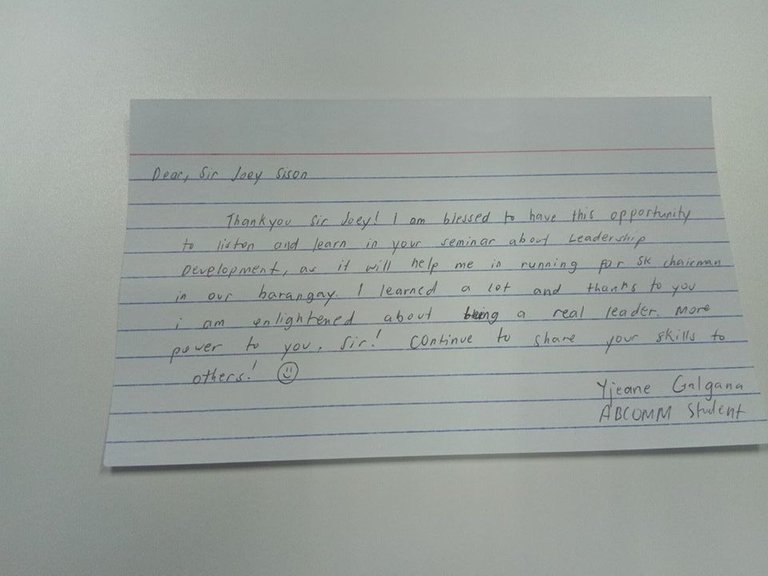 Dear, Sir Joey Sison
Thankyou Sir Joey! I am blessed to have this opportunity
to listen and learn in your seminar about Leadership
Development, as it will help me in running for SK chairman
in our barangay. I learned a lot and thanks to you
i am enlightened about being a real leader. More
power to you, Sir! Continue to share your skills to
others! ☺
Yjeane Galgana
ABCOMM Student